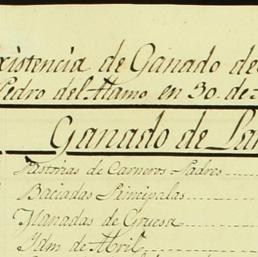 xistencia de Ganado de
Pedro del Alamo en 30. de
Ganado de La
Pastorias de Carneros Padres
Baciadas Principales
Manadas de Gruesa
Idm de Abril